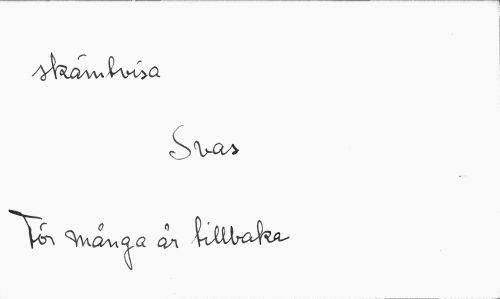 skämtvisa
Svas
För många år tillbaka